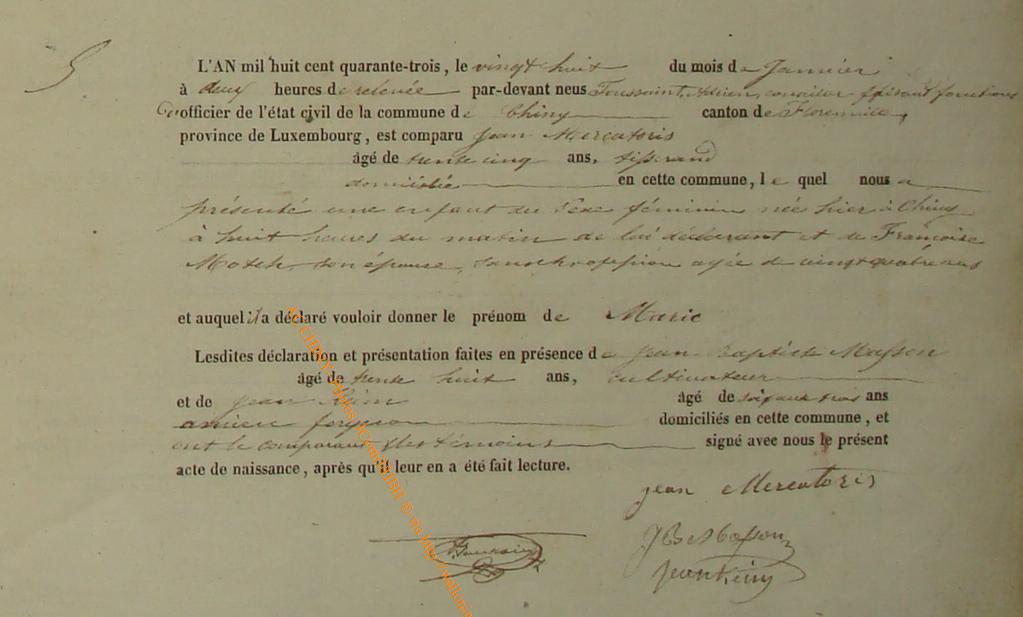 5
L'AN mil huit cent quarante-trois, le vingt huit du mois de Janvier
à deux heures de relevée par-devant nous Toussaint, Adrien, conseiller faisant fonctions
d'officier de l'état civil de la commune de Chiny canton de Florenville,
province de Luxembourg, est comparu Jean Mercatoris
âgé de trente cinq ans, tisserand
domicilié en cette commune, le quel nous a
présenté une enfant du sexe féminin née hier à Chiny
à huit heures du matin de lui déclarant et de Françoise
son épouse, sans profession agée de vingt quatre ans
et auquel il a déclaré vouloir donner le prénom de Marie
Lesdites déclaration et présentation faites en présence de Jean Baptiste Masson
âgé de trente huit ans, cultivateur
et de Jean âgé de soixante trois ans
ancien domiciliés en cette commune, et
ont le comparant et les témoins signé avec nous le présent
acte de naissance, après qu'il leur en a été fait lecture.
jean Mercatoris
JB Masson
A Toussaint
jean